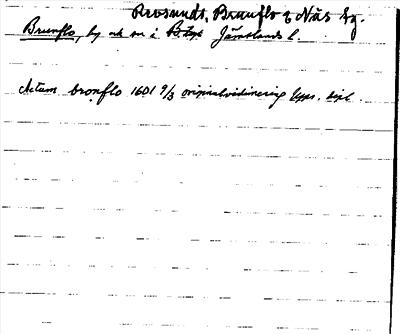 Revsundt, Brunflo o Näs tg.
Brunflo, by och sn i Jämtlands l.
Actum bronflo 1601 9/3 originalvidimering Upps. dipl